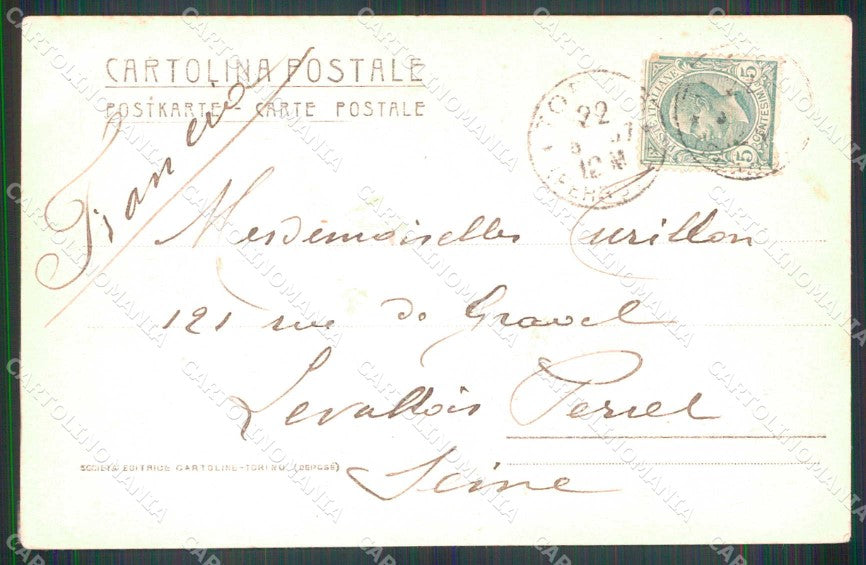 CARTOLINA POSTALE
POSTKARTE - CARTE POSTALE
Francia
22
12 M
POSTE ITALIANE
5 CENTESIMI 5
Mesdemoiselles Curillon
121 rue de Gravel
Levallois Perret
Seine
SOCIETÀ EDITRICE CARTOLINE-TORINO (DEPOSE)
CARTOLINOMANIA